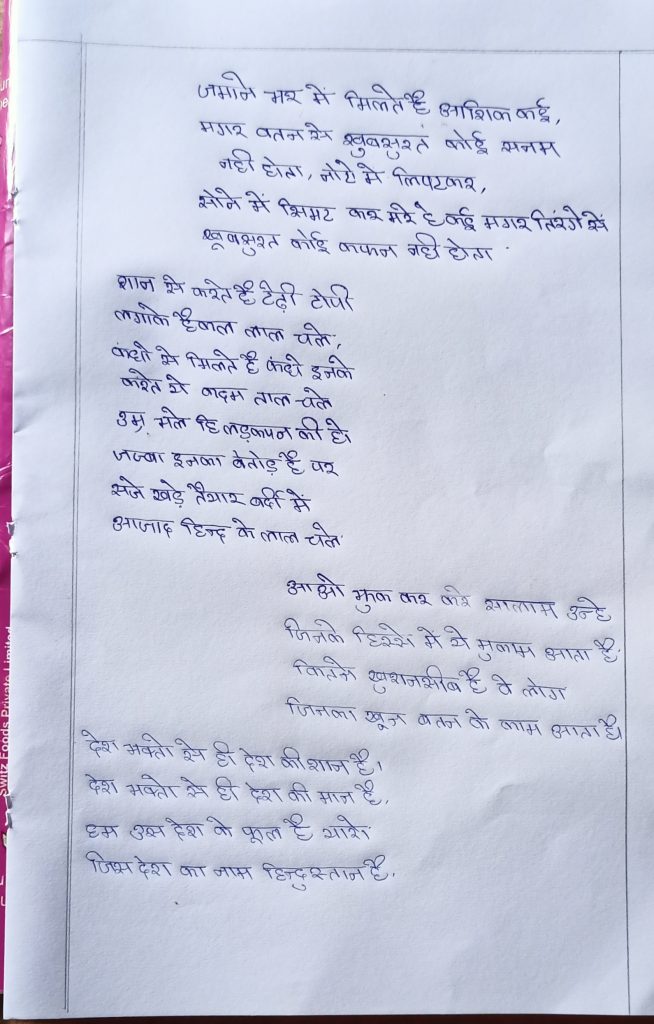 जमाने भर में मिलते है आशिक कई,
मगर वतन से खुबसुरत कोई सनम
नही होता, नोटो मे लिपटकर,
सोने में सिमट कर मरे है कई मगर तिरंगे से
खूबसुरत कोई कफन नही होता
शान से करते है टेढ़ी टोपी
लगाके है लाल चले,
कंधो से मिलते है कंधे इनके
करते ये कदम ताल चले
उम्र भले हि लड़कपन की हो
जज्बा इनका बेतोड़ है पर
सजे खड़े तैयार वर्दी में
आजाद हिन्द के लाल चले
आओ झुक कर करे सालाम उन्हे
जिनके हिस्से मे ये मुकाम आता है
कितने खुशनसीब है वे लोग
जिनका खून वतन के काम आता है।
देश भक्तो से ही देश की शान है।
देश भक्तो से ही देश की मान है.
हम उस देश के फूल है यारो
जिस देश का नाम हिन्दुस्तान है.
Switz Foods Private Limited